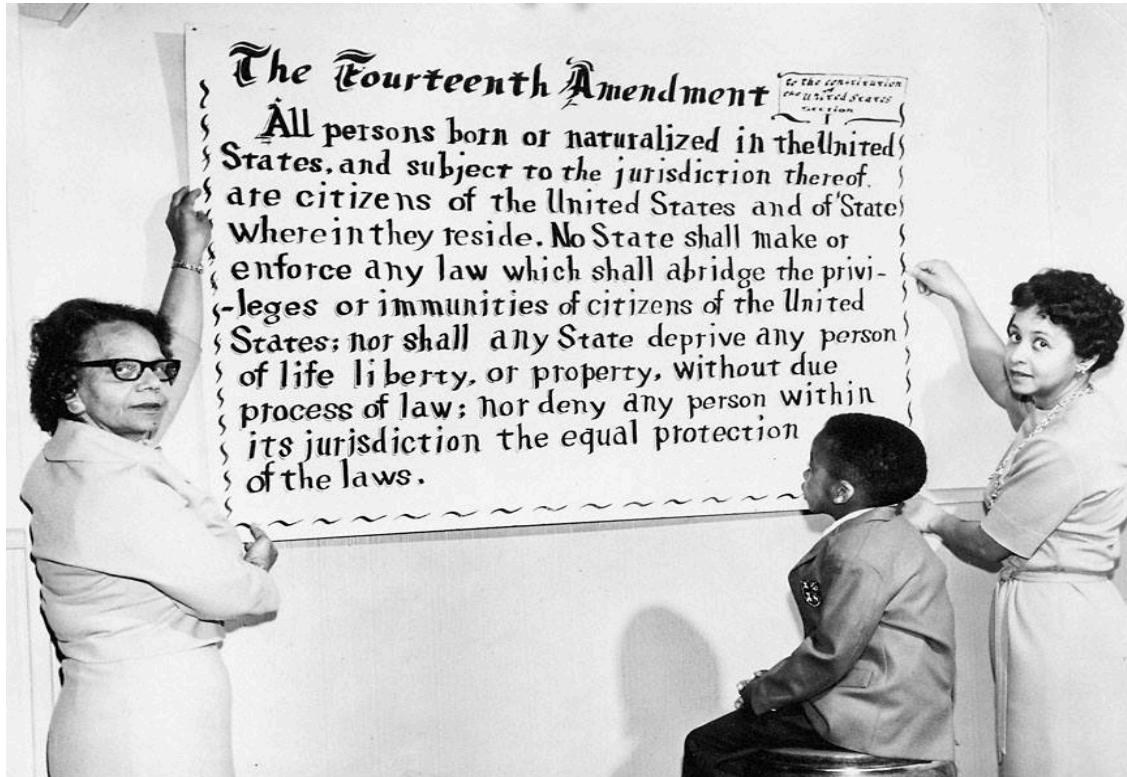 The Fourteenth Amendment
to the constitution
of
the United States
section
1
All persons born or naturalized in the United
States, and subject to the jurisdiction thereof.
are citizens of the United States and of State
wherein they reside. No State shall make or
enforce any law which shall abridge the privi-
-leges or immunities of citizens of the United
States; nor shall any State deprive any person
of life liberty, or property, without due
process of law; nor deny any person within
its jurisdiction the equal protection
of the laws.